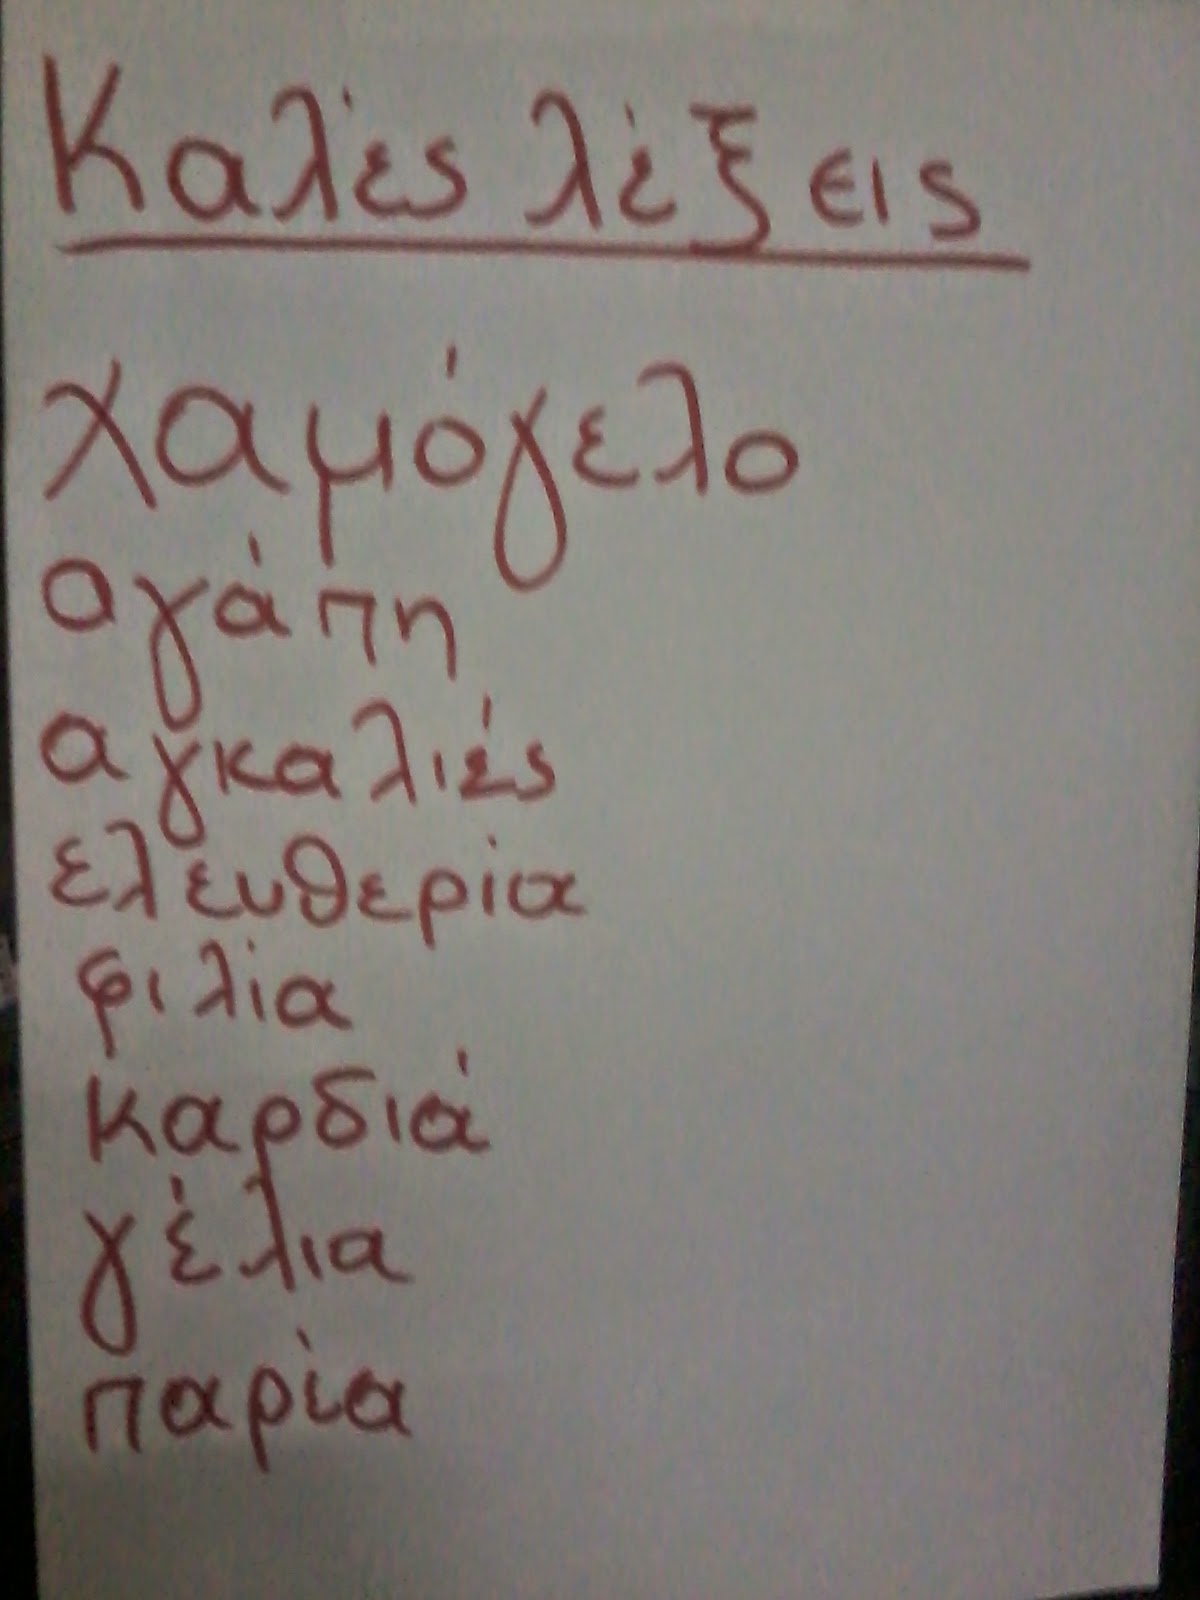 Καλές λέξεις
χαμόγελο
αγάπη
αγκαλιές
ελευθερία
φιλία
καρδιά
γέλια
παρία